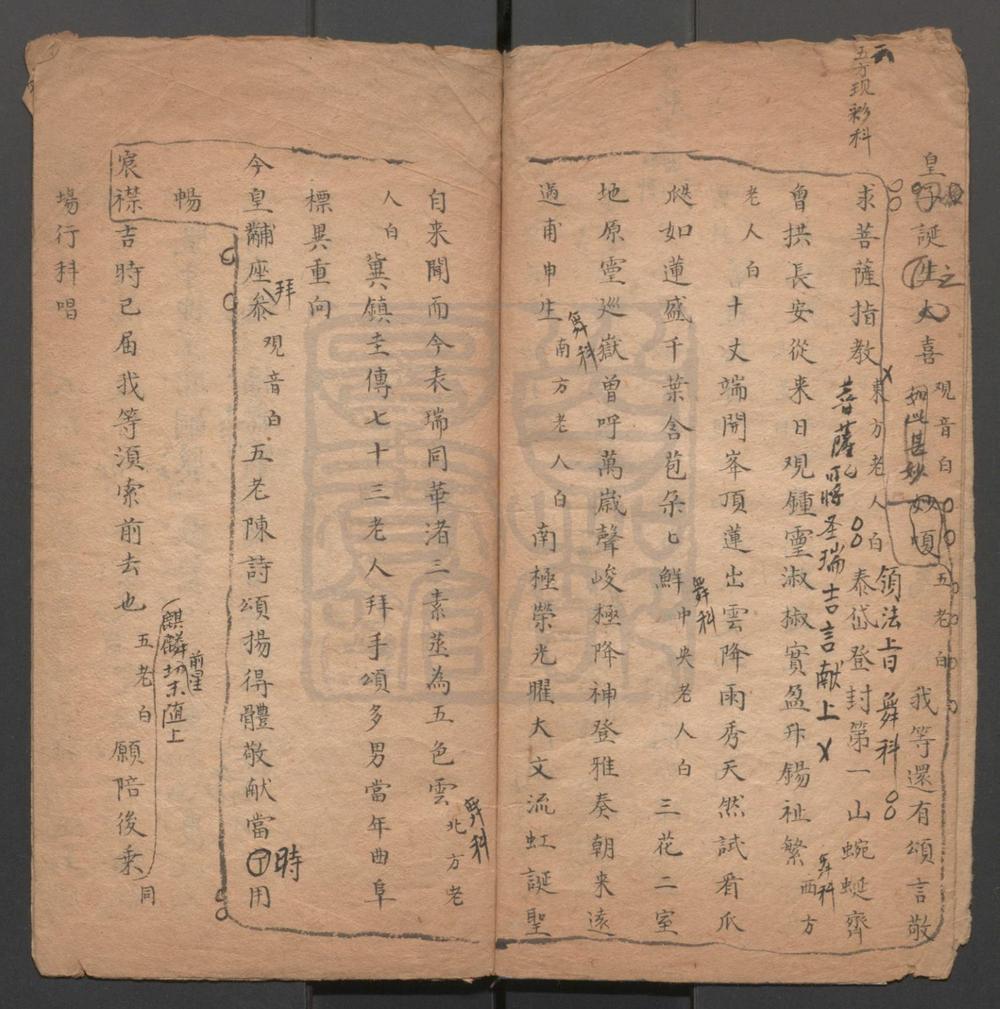 五方现彩科
皇子誕生之大喜 观音白 如此甚妙 妙嗄 五老白 我等還有頌言敬
求菩薩指教 東方老人白 領法上白 舞科 泰岱登封第一山蜿蜒齊
菩薩吓將圣瑞吉言献上
魯拱長安從来日观鍾靈淑椒實盈升錫祉繁 舞科 西方
老人白 十丈端開峯頂蓮出雲降雨秀天然試看瓜
瓞如蓮盛千葉含苞朵匕鮮 舞科 中央老人白 三花二室
地原靈巡嶽曾呼萬歲聲峻極降神登雅奏朝来遠
過甫申生 舞科 南方老人白 南極榮光曜大文流虹誕聖
自来聞而今表瑞同華渚三素蒸為五色雲 舞科 北方老
人白 冀鎮圭傳七十三老人拜手頌多男當年曲阜
標異重向
今皇黼座叅 拜 观音白 五老陳詩頌揚得體敬献當時用
暢
宸襟吉時已届我等湏索前去也 五老白 願陪後乘 同
麒麟 前星 隨上
場行科唱